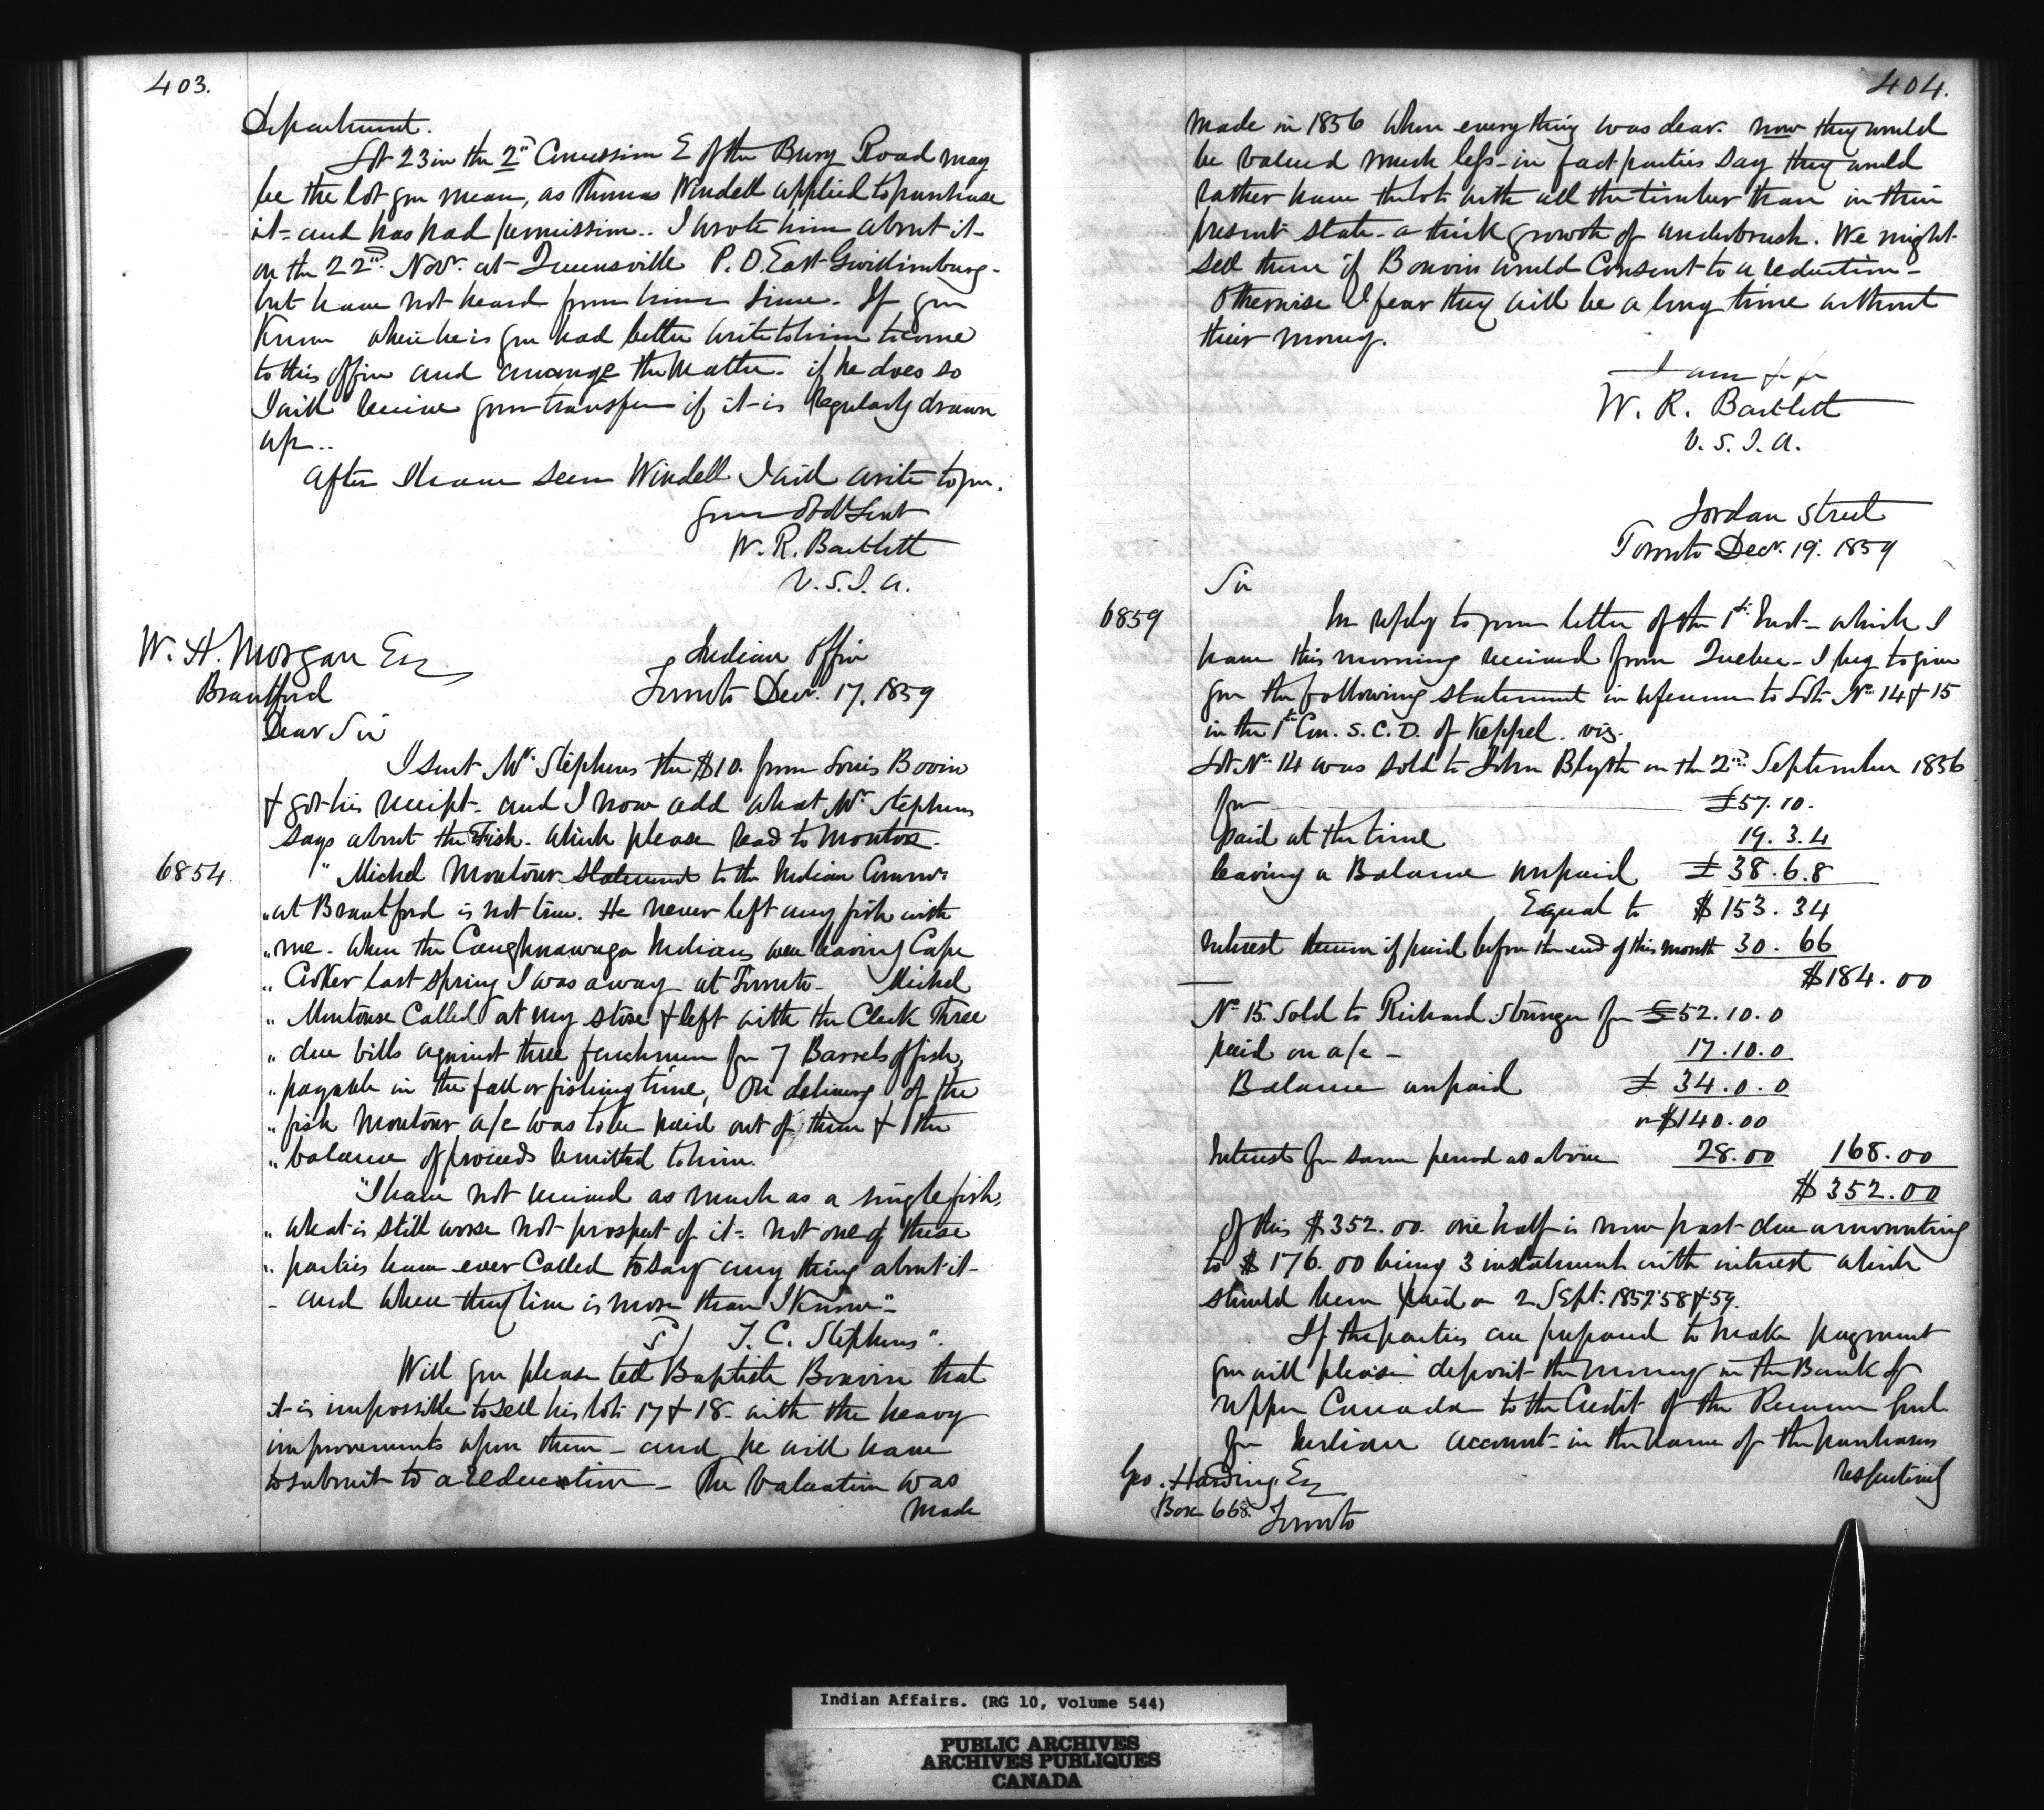 403.
Department.
Lot 23 in the 2nd Concession E of the Bury Road may
be the lot you mean, as Thomas Windell applied to purchase
it - and has had permission.. I wrote him about it -
on the 22nd Novr. at Queensville P.O. East Gwillimburg -
but have not heard from him since. If you
know where he is you had better write to him to come
to this office and arrange the matter. if he does so
I will receive your transfer if it is regularly drawn
up..
After I have seen Windell I will write to you.
Your Obdt Servt
W. R. Bartlett
V.S.I.A.
W. H. Morgan Esq
Brantford
Indian Office
Toronto Decr. 17. 1859
Dear Sir
I sent Mr. Stephens the $10. from Louis Bovin
& got his receipt - and I now add what Mr Stephens
says about the Fish. which please read to Montour.
6854.
" Michel Montour statement to the Indian Commr.
" at Brantford is not true. He never left any fish with
" me. When the Caughnawaga Indians were leaving Cape
" Croker last spring I was away at Toronto - Michel
" Montour Called at my store & left with the Clerk Three
" due bills against three frenchmen for 7 Barrels of fish,
" payable in the fall or fishing time, On delivery of the
" fish Montour a/c was to be paid out of them & the
" balance of proceeds remitted to him.
"I have not received as much as a single fish,
" what is still worse not prospect of it - not one of these
" parties have ever Called to say any thing about it -
- and where they live is more than I know" -
S/ T. C. Stephens".
Will you please tell Baptiste Bouvin that
it is impossible to sell his lots 17 & 18. with the heavy
improvements upon them - and he will have
to submit to a reduction - The Valuation was
made
404.
made in 1856 when everything was dear. now they would
be valued much less - in fact parties say they would
rather have the lots with all the timber than in their
present state - a thick growth of underbrush. We might
sell them if Bouvin would Consent to a reduction -
otherwise I fear they will be a long time without
their money.
I am &c &c
W. R. Bartlett
V.S.I.A.
Jordan Street
Toronto Decr. 19. 1859
Sir
6859
In reply to your letter of the 1st Inst - which I
have this morning received from Quebec - I beg to give
you the following statement in reference to Lots No 14 & 15
in the 1st Con. S.C.D. of Keppel. viz.
Lot No 14 was sold to John Blyth on the 2nd September 1856
for £57.10.
paid at the time 19.3.4
leaving a Balance unpaid £38.6.8
Equal to $153.34
Interest thereon if paid before the end of this month 30.66
$184.00
No 15. Sold to Richard Stringer for £52.10.0
paid on a/c - 17.10.0
Balance unpaid £34.0.0
or $140.00
Interest for same period as above 28.00 168.00
$352.00
Of this $352.00. one half is now past due amounting
to $176.00 being 3 instalment with interest which
should been paid on 2 Sept: 1857. 58 & 59.
If the parties are prepared to make payment
you will please deposit the money in the Bank of
Upper Canada to the Credit of the Receiver Genl.
for Indian account - in the name of the purchasers
respectively
Geo. Harding Esq
Box 668. Toronto
Indian Affairs. (RG 10, Volume 544)
PUBLIC ARCHIVES
ARCHIVES PUBLIQUES
CANADA